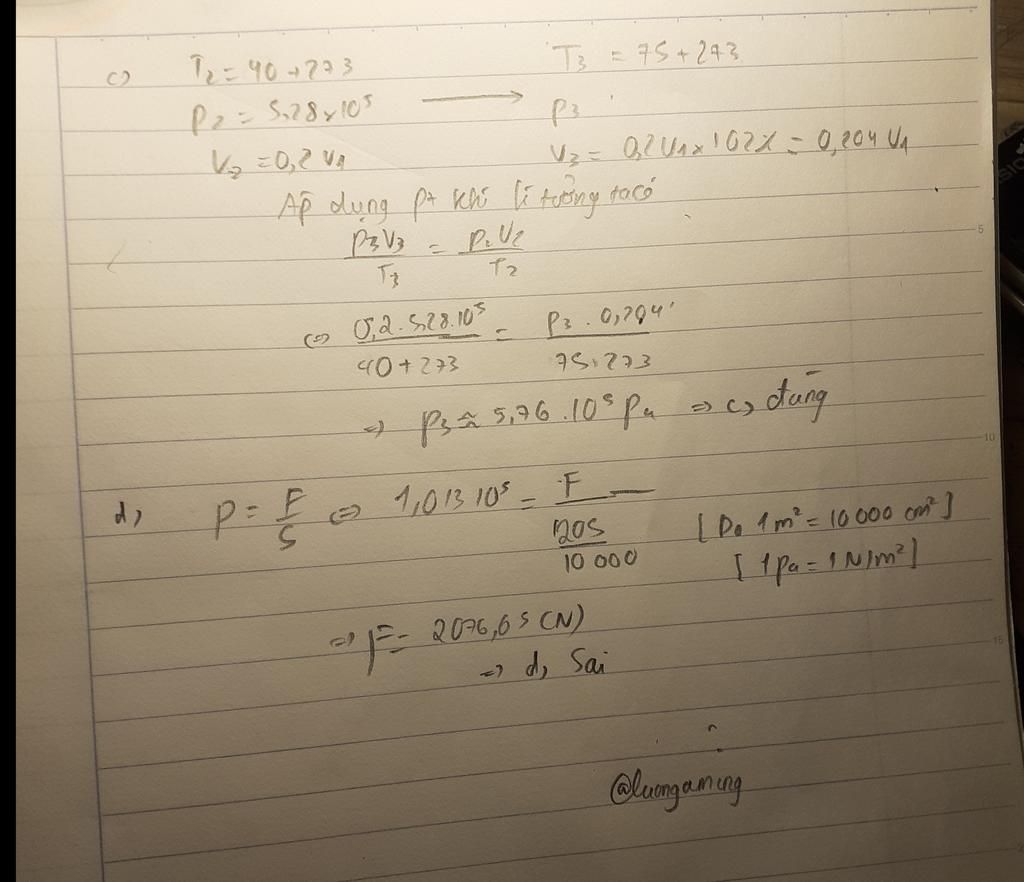 c) T₂ = 40+273 T₃ = 75+273
P₂ = 5,28×10⁵ ⟶ P₃
V₂ = 0,2 V₁ V₃ = 0,2V₁×102% = 0,204 V₁
Áp dụng pt khí lí tưởng ta có
P₃V₃/T₃ = P₂V₂/T₂
⇔ 0,2.5,28.10⁵/40+273 = P₃.0,204/75+273
⇒ P₃ ≈ 5,76.10⁵ Pa ⇒ c, đúng
d, P = F/S ⇔ 1,013 10⁵ = F/(205/10 000) [Do 1m² = 10 000 cm²]
[1Pa = 1N/m²]
⇒ F = 2076,65 (N)
⇒ d, Sai
@luongaming